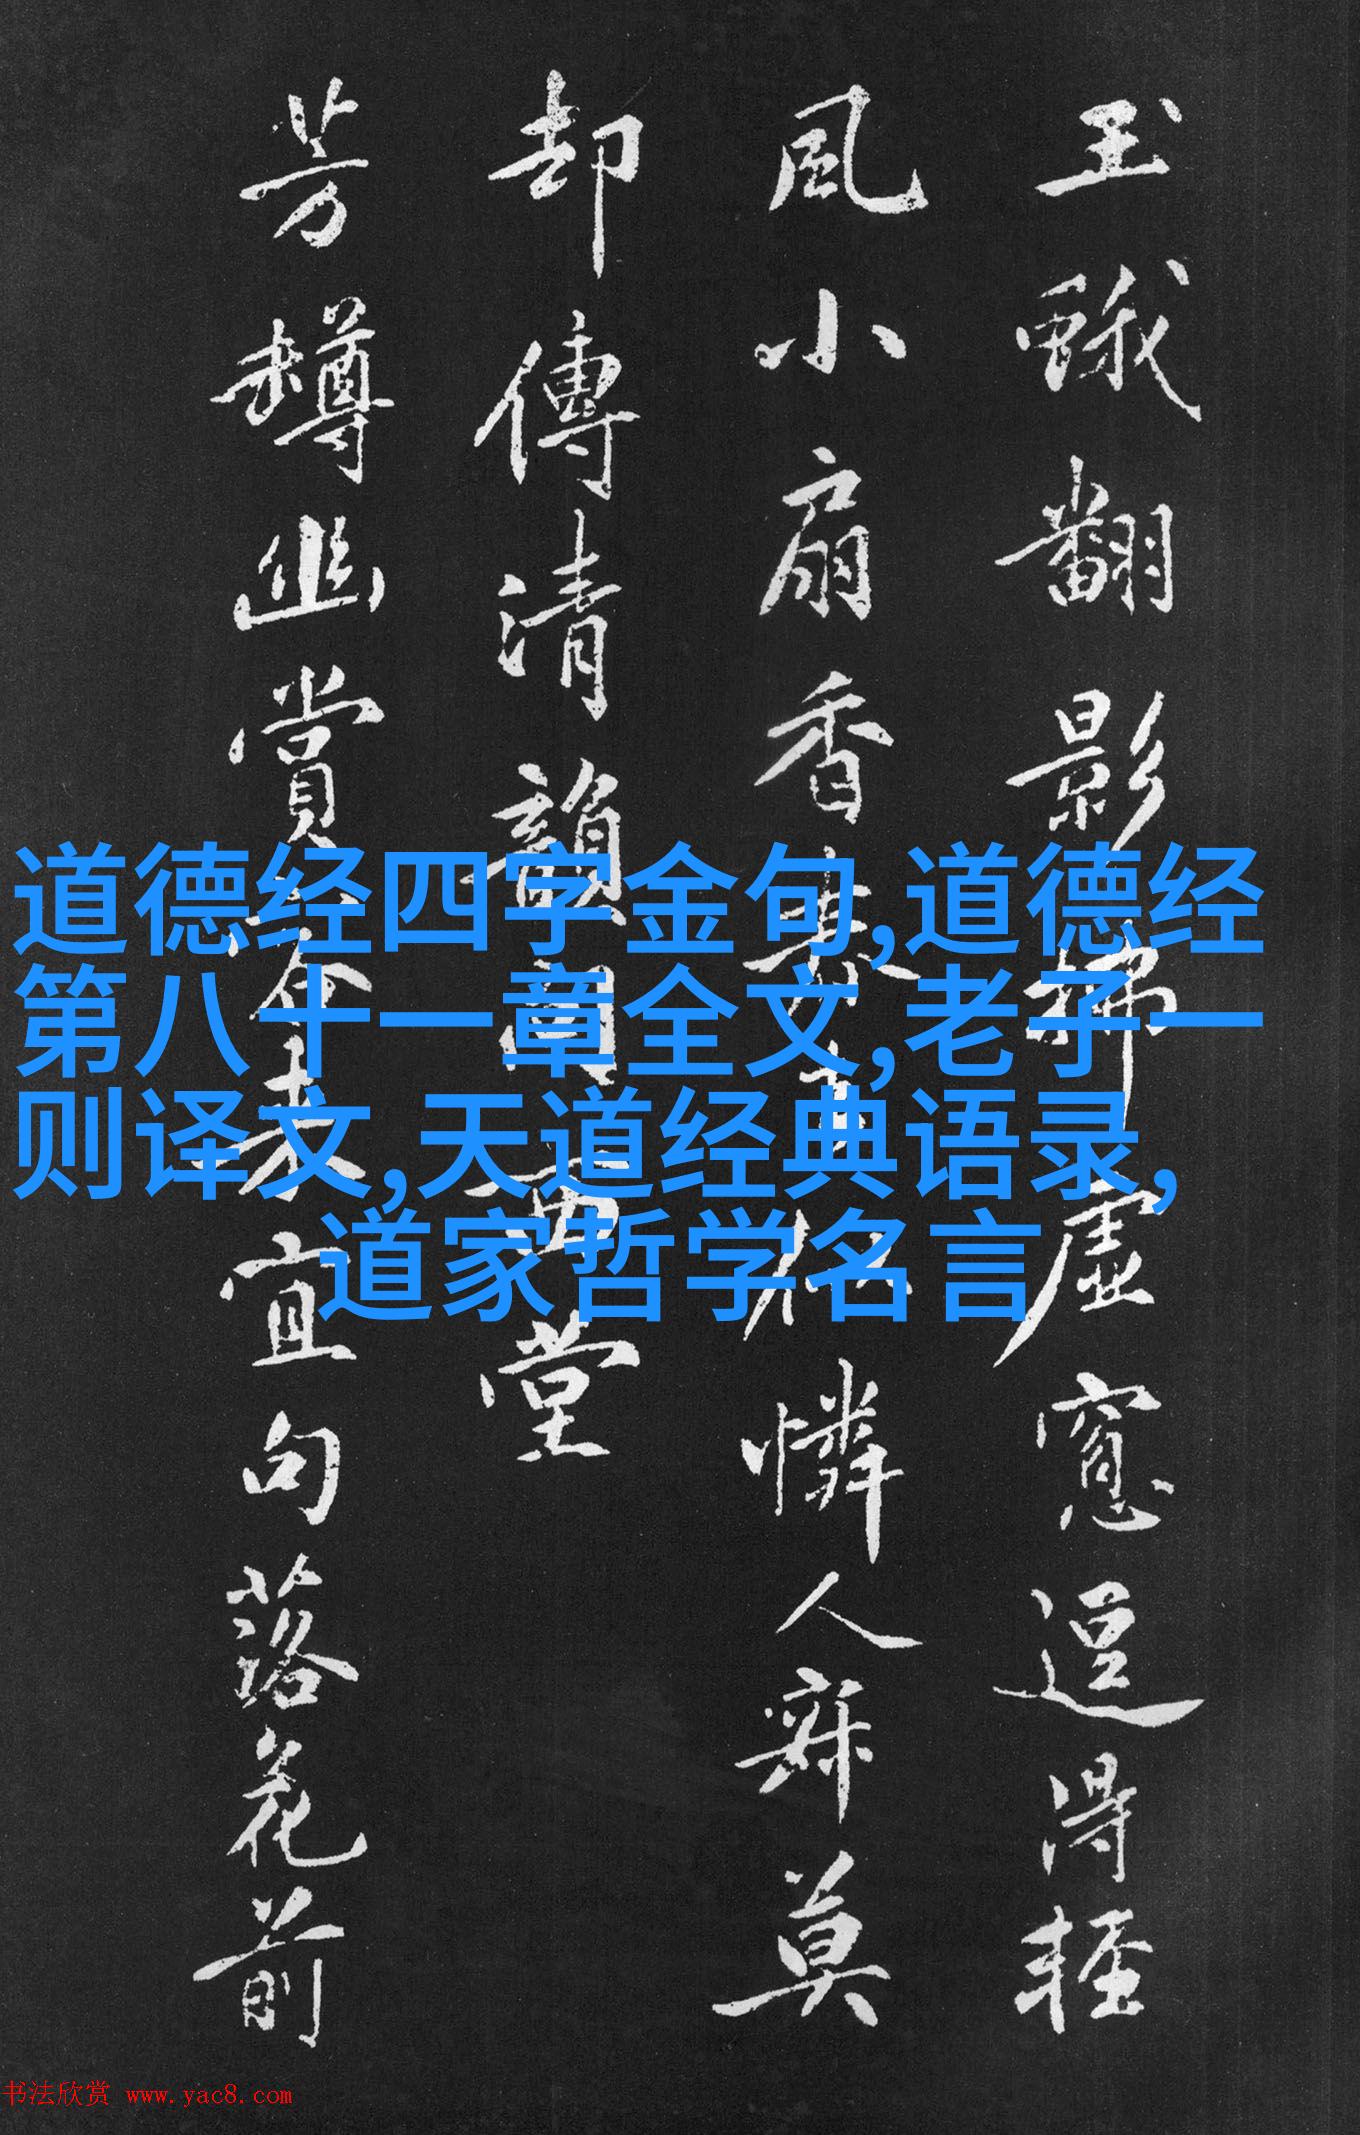 玉蛾翻影拂虛窓逗得輕
風小扇香憐人莫
却傳清韻西堂
芳樽幽賞宜句落花前
道德经四字金句,道德经
第八十一章全文,老子一
则译文,天道经典语录,
道家哲学名言
书法欣赏 www.yac8.com